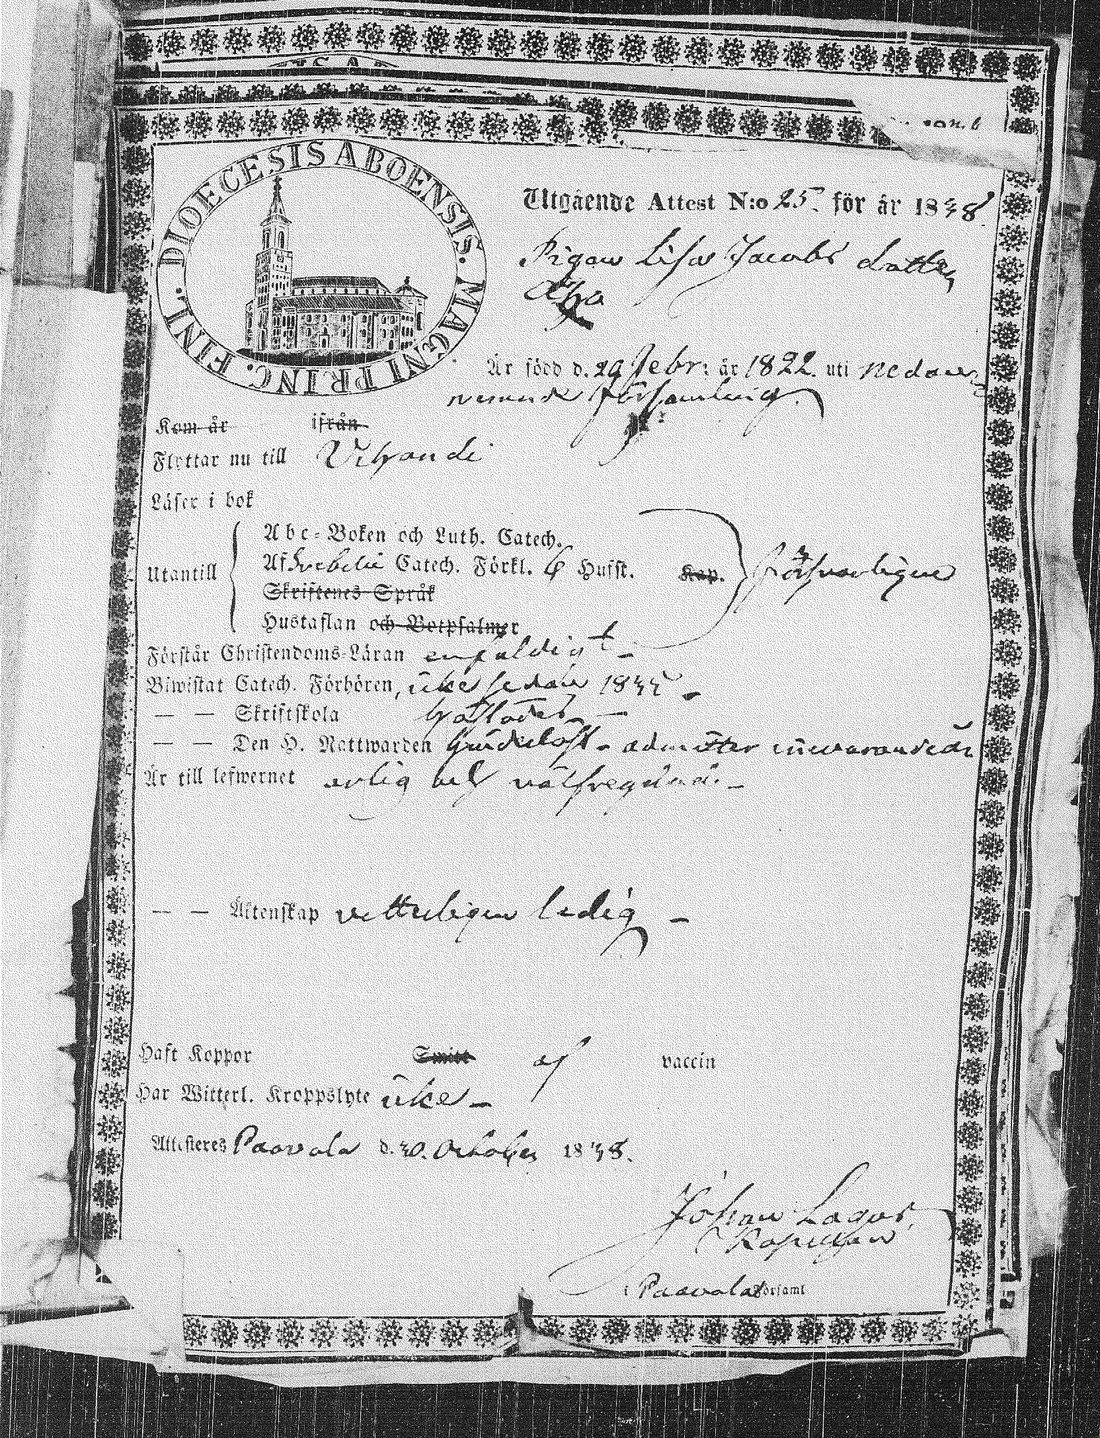 DIOECESIS ABOENSIS. MAGNI PRINC. FINL.
Utgående Attest N:o 25. för år 1838
Pigan Lisa Jacobs dotter
Är född d. 29 Febr: år 1822. uti nedan
församling
Kom år ifrån
Flyttar nu till Vihandi
Läser i bok
Utantill
Abc-Boken och Luth. Catech.
Af Svebelii Catech. Förkl. 6 Hufst. Kap. försvarligen
Skriftenes Språk
Hustaflan och Botpsalmer
Förstår Christendoms-Läran enfaldigt -
Biwistat Catech. Förhören, icke sedan 18
— — Skriftskola
— — Den H. Nattwarden
Är till lefwernet ärlig och välfregdad. -
— — Äktenskap vetterligen ledig -
Haft Koppor Smitt af vaccin
Har Witterl. Kroppslyte icke -
Attesteres Paavola d. 30. October 1838.
Johan Lagus,
Kapellan
i Paavola Församl